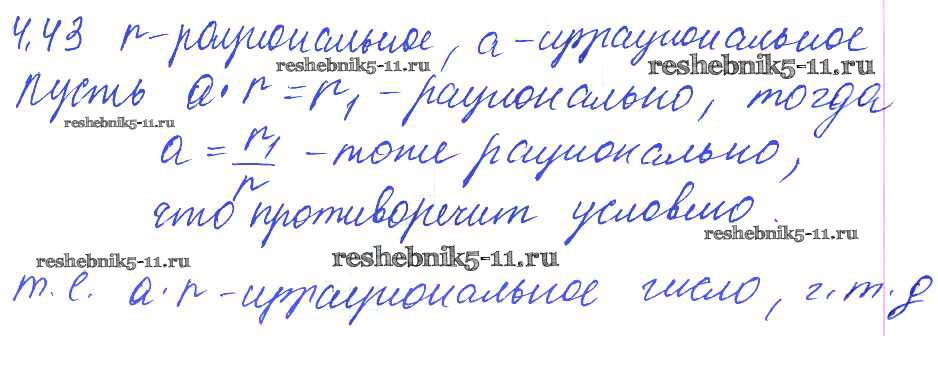 4.43 r - рациональное, a - иррациональное
reshebnik5-11.ru reshebnik5-11.ru
Пусть a · r = r₁ - рационально, тогда
reshebnik5-11.ru
a = r₁/r - тоже рационально,
что противоречит условию.
reshebnik5-11.ru
reshebnik5-11.ru reshebnik5-11.ru
т.е. a · r - иррациональное число, ч.т.д